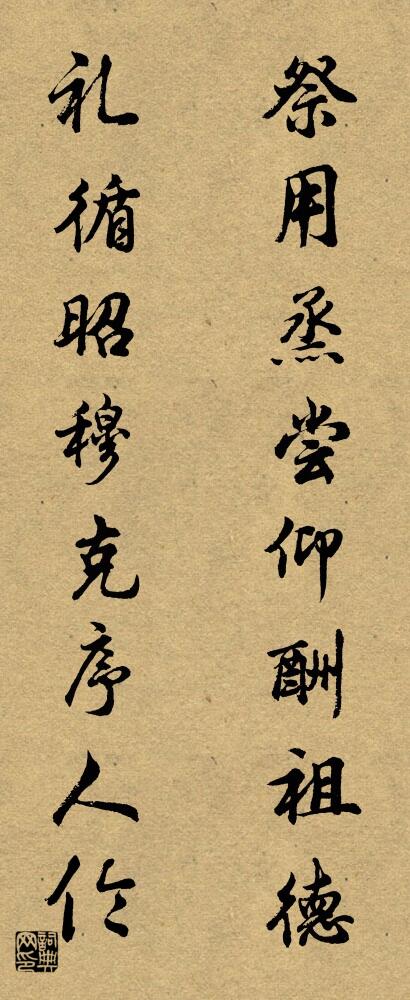 祭用烝尝仰酬祖德
礼循昭穆克序人伦
詞典网印